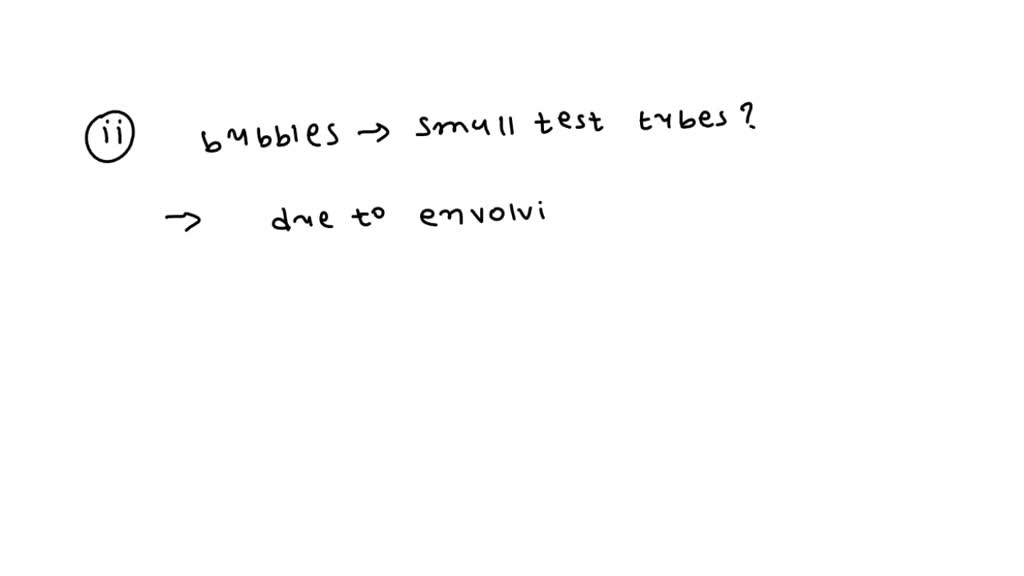 ii bubbles → small test tubes?
→ due to envolvi